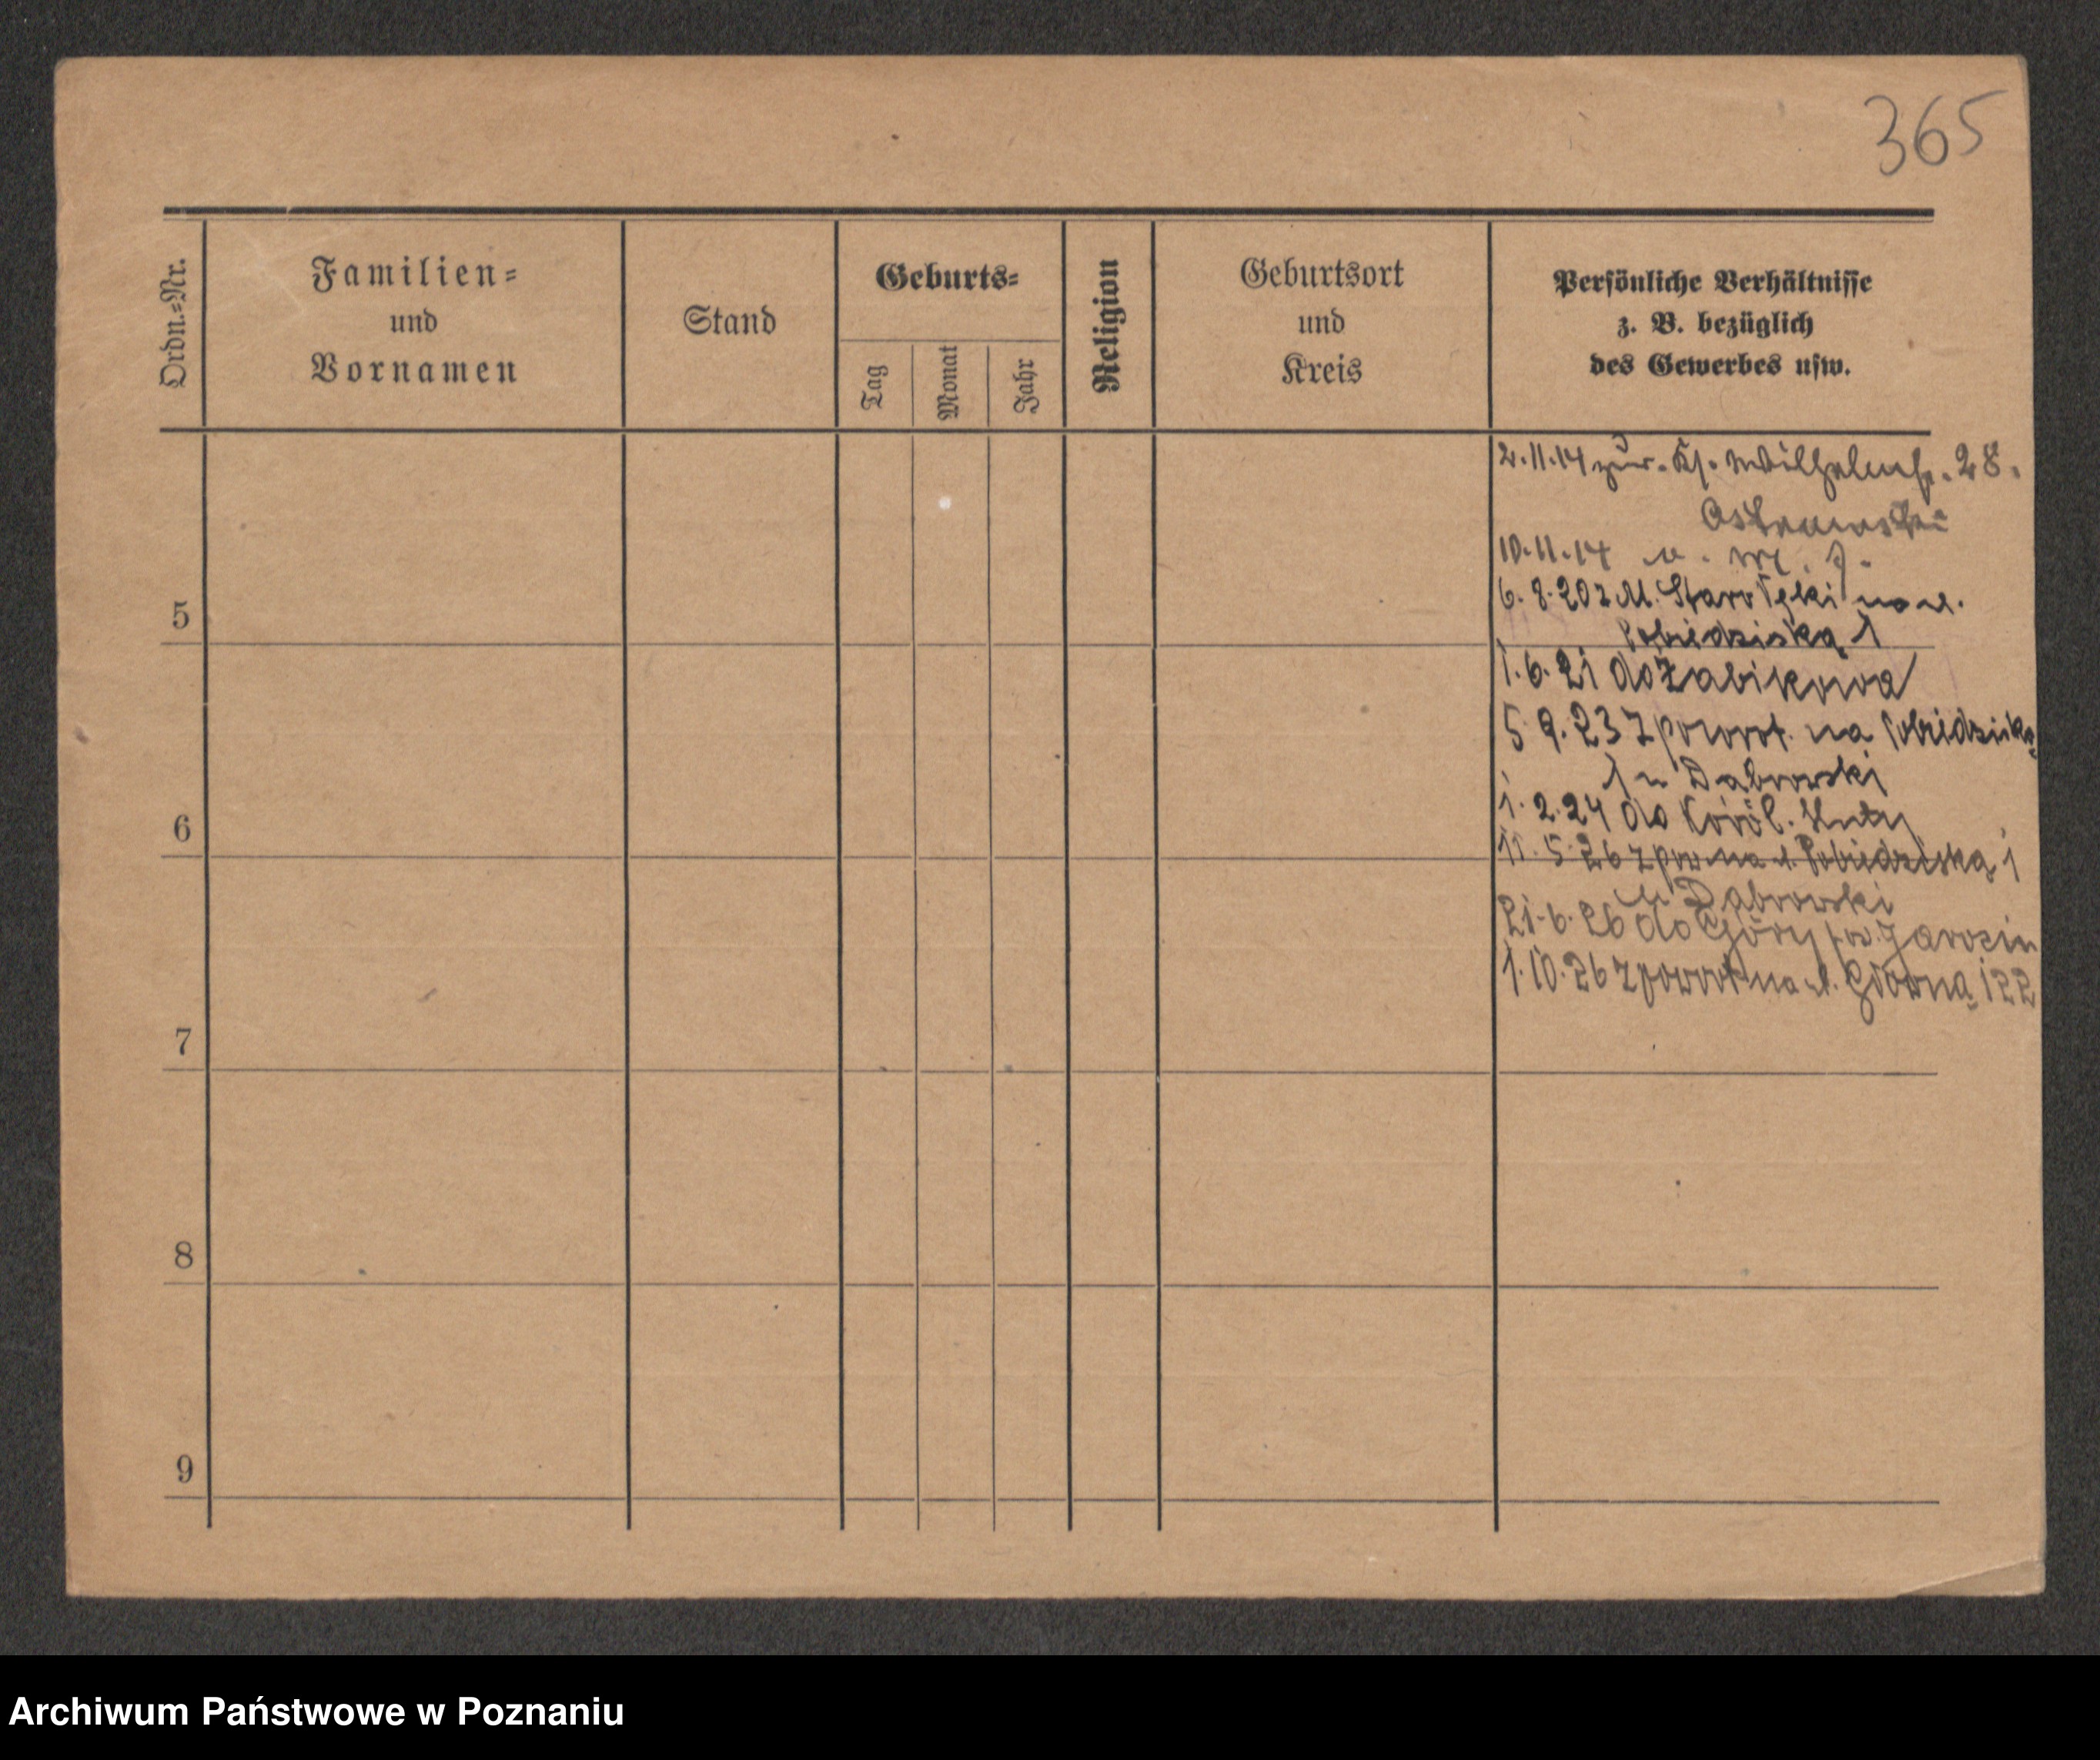 365
Ordn.-Nr.
Familien-
und
Vornamen
Stand
Geburts-
Tag
Monat
Jahr
Religion
Geburtsort
und
Kreis
Persönliche Verhältnisse
z. B. bezüglich
des Gewerbes usw.
2.11.14 zur. Wilhelmstr. 28.
10.11.14
5
6.8.20 z M. Starołęki na ul.
Pobiedziska 1
1.6.21 do Żabikowa
5 9.23 z powrot. na Pobiedziska
1 u Dąbrowski
6
1.2.24 do Król. Huty
11.5.26 z pow na ul. Pobiedziska 1
u Dąbrowski
21.6.26 do Góry pow. Jarocin
1.10.26 z powrot na ul. Górna 122
7
8
9
Archiwum Państwowe w Poznaniu